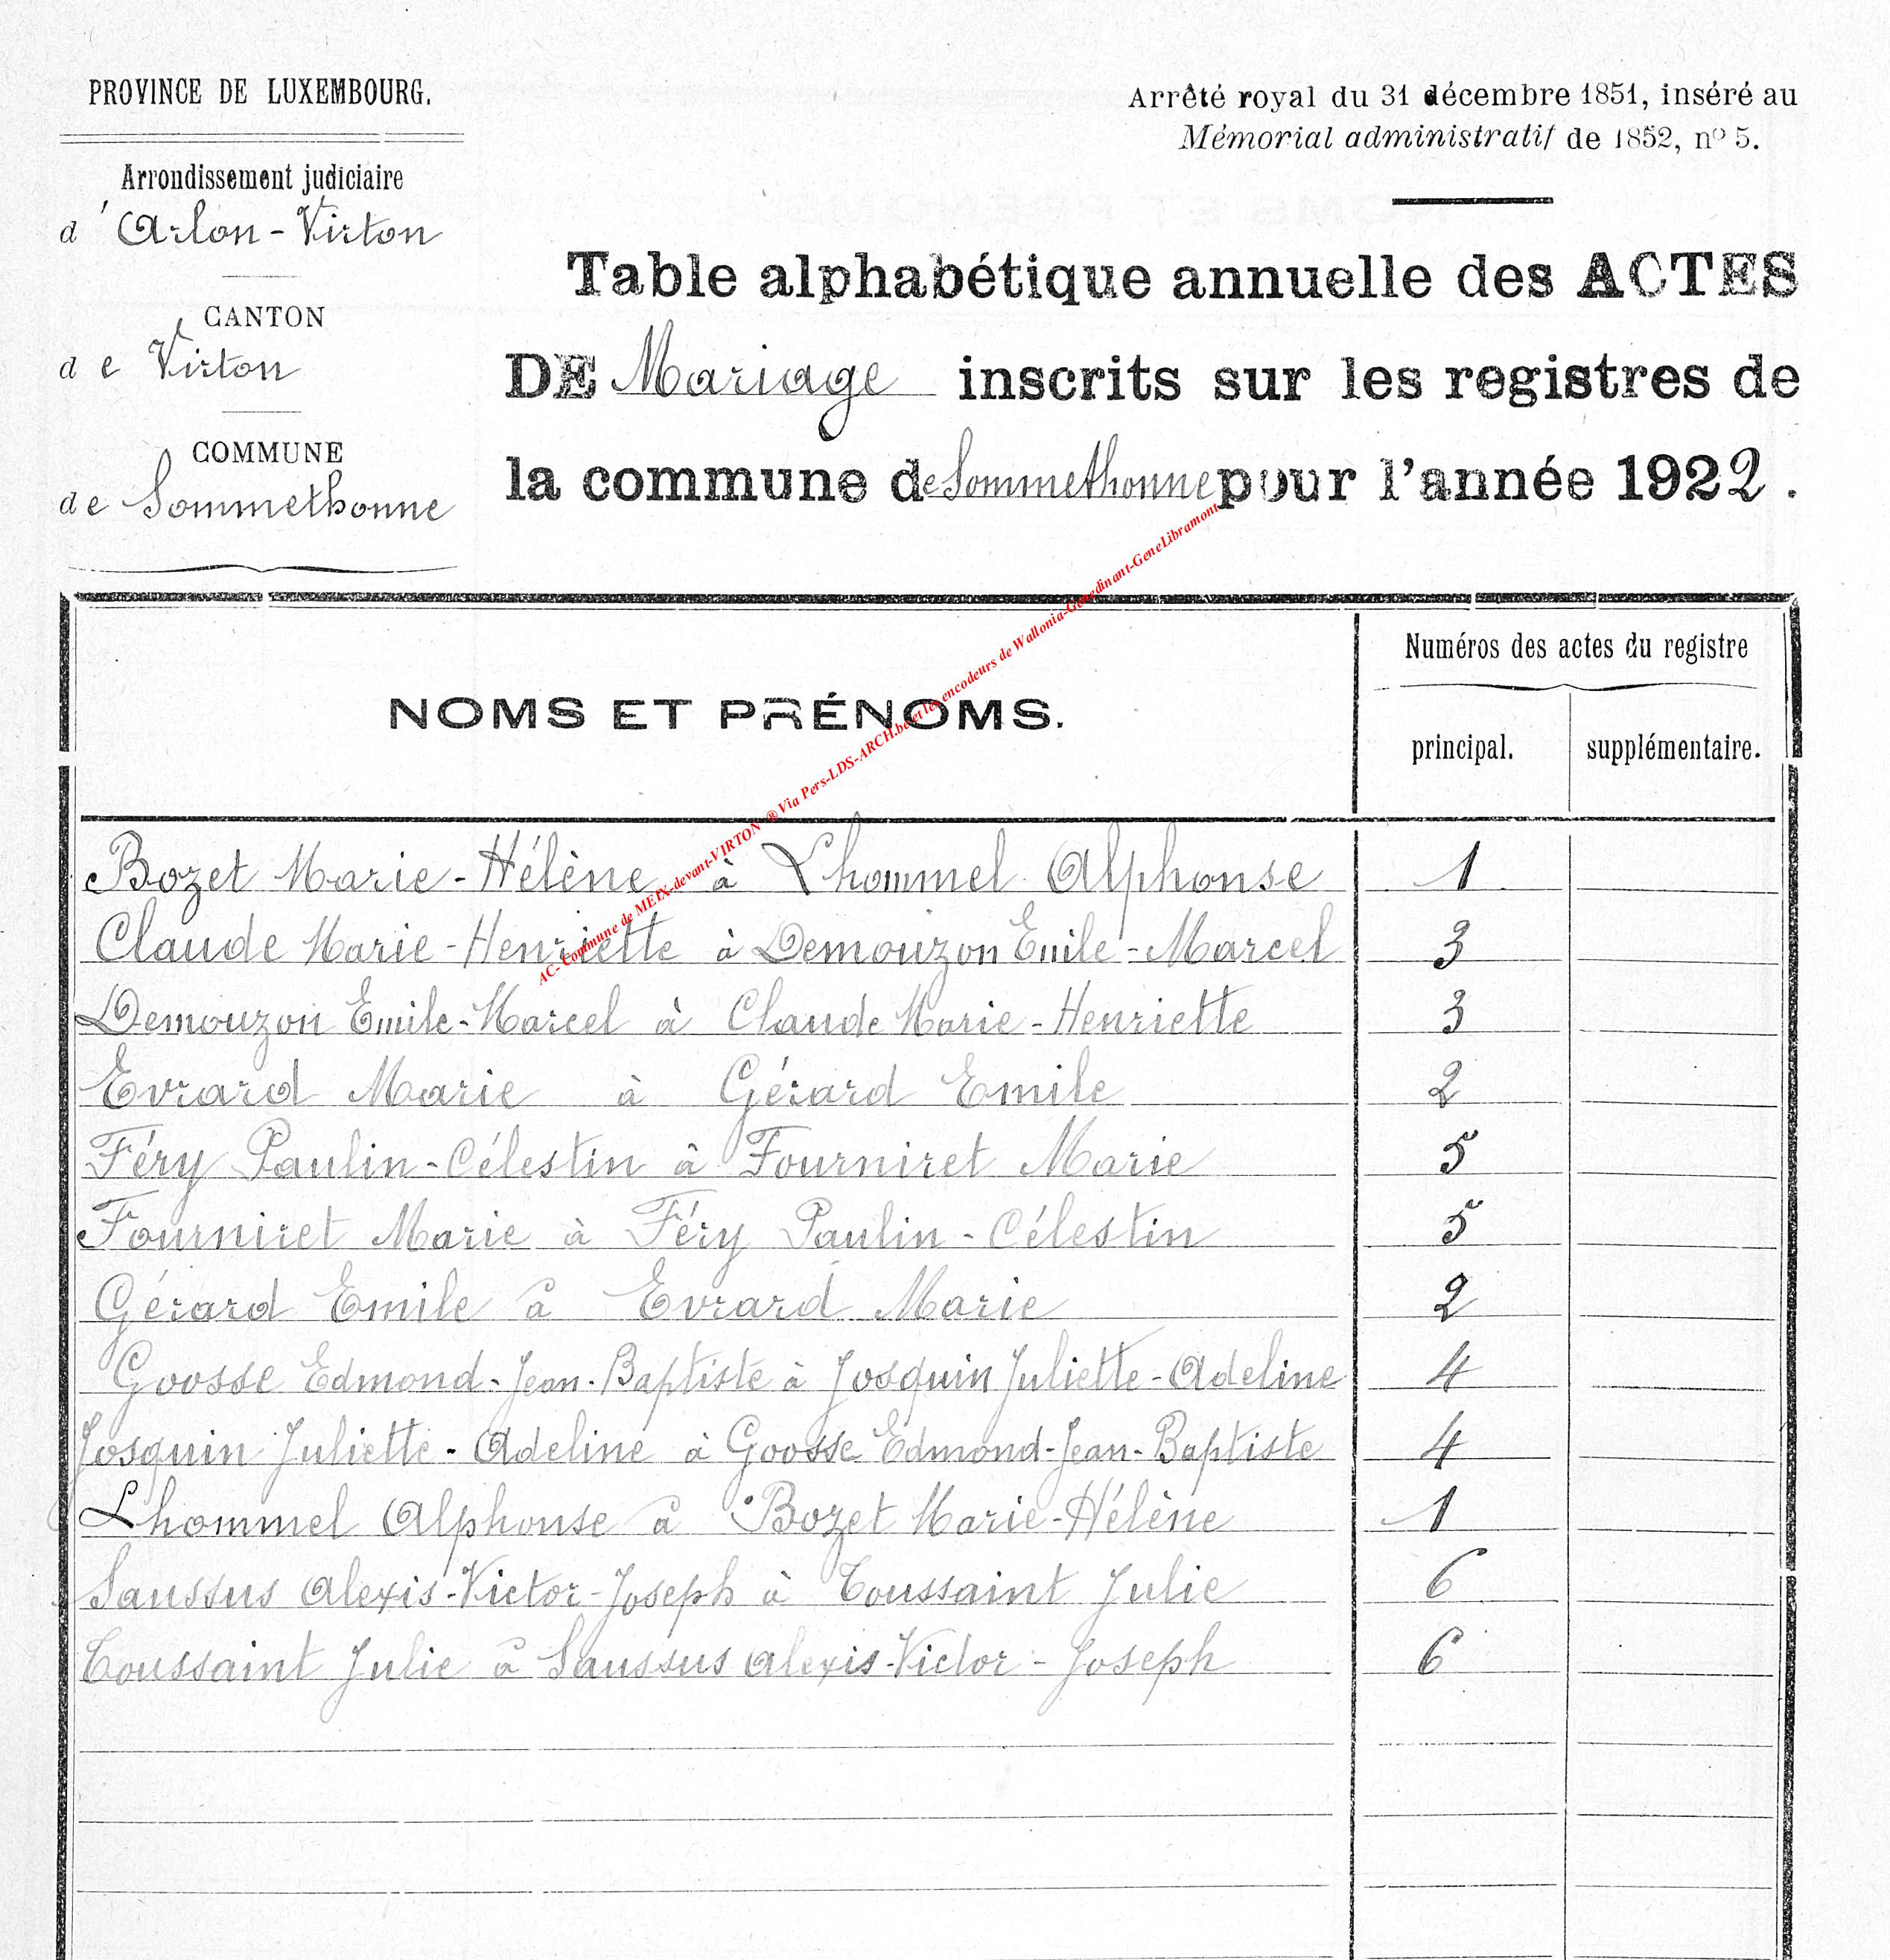 PROVINCE DE LUXEMBOURG.
Arrondissement judiciaire
d' Arlon-Virton
CANTON
de Virton
COMMUNE
de Sommethonne
Arrêté royal du 31 décembre 1851, inséré au
Mémorial administratif de 1852, nº 5.
Table alphabétique annuelle des ACTES
DE Mariage inscrits sur les registres de
la commune de Sommethonne pour l'année 1922.
AC- Commune de MEIX-devant-VIRTON ® Via Pers-LDS-ARCH.be et les encodeurs de Wallonia-Genedinant-GeneLibramont
NOMS ET PRÉNOMS.
Numéros des actes du registre
principal. supplémentaire.
Bozet Marie-Hélène à Lhommel Alphonse 1
Claude Marie-Henriette à Demouzon Emile-Marcel 3
Demouzon Emile-Marcel à Claude Marie-Henriette 3
Evrard Marie à Gérard Emile 2
Féry Paulin-Célestin à Fourniret Marie 5
Fourniret Marie à Féry Paulin-Célestin 5
Gérard Emile à Evrard Marie 2
Goosse Edmond-Jean-Baptiste à Josquin Juliette-Adeline 4
Josquin Juliette-Adeline à Goosse Edmond-Jean-Baptiste 4
Lhommel Alphonse à Bozet Marie-Hélène 1
Saussus Alexis-Victor-Joseph à Toussaint Julie 6
Toussaint Julie à Saussus Alexis-Victor-Joseph 6